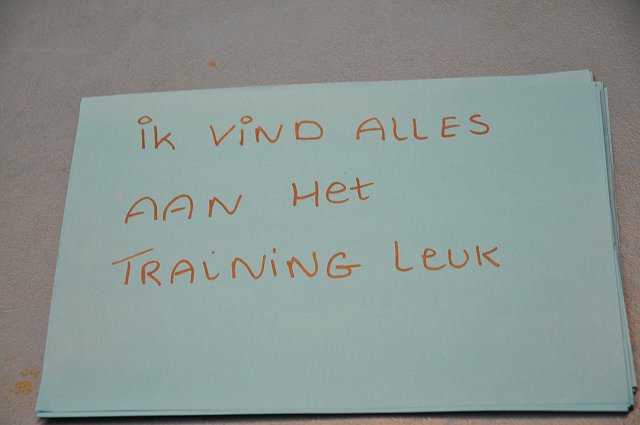 iK ViND ALLES
AAN Het
TRAiNiNG LeUK